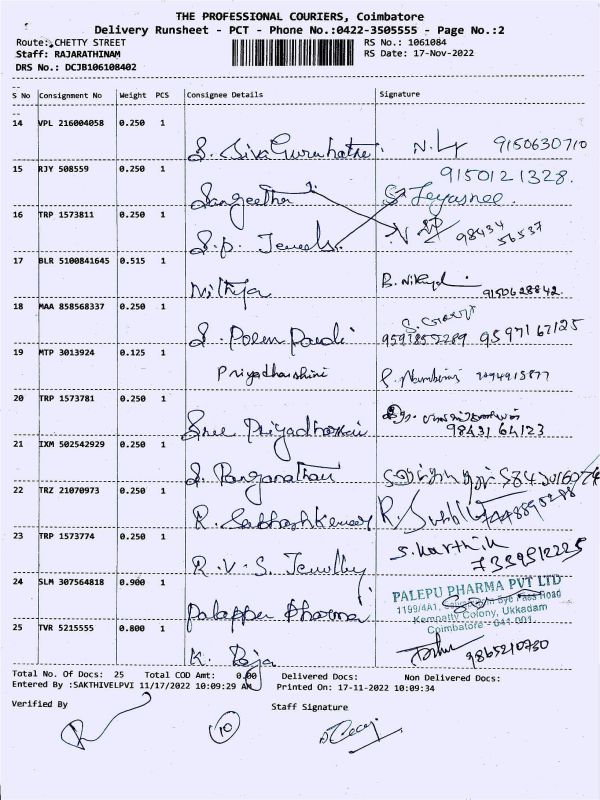 THE PROFESSIONAL COURIERS, Coimbatore
Delivery Runsheet - PCT - Phone No.:0422-3505555 - Page No.:2
Route: CHETTY STREET
RS No.: 1061084
Staff: RAJARATHINAM
RS Date: 17-Nov-2022
DRS No.: DCJB106108402
S No Consignment No Weight PCS Consignee Details Signature
14 VPL 216004058 0.250 1
S. Siva Gurunathan 9150630710
15 RJY 508559 0.250 1 9150121328.
Sangeetha S. Jeyashee.
16 TRP 1573811 0.250 1 98434
S.P. Jewels. 56537
17 BLR 5100841645 0.515 1
Nithya 9150628842.
18 MAA 858568337 0.250 1
S. Poen Pandi 9597167125
19 MTP 3013924 0.125 1
Priyadharshini
20 TRP 1573781 0.250 1
Sree Priyadharshini 98431 64123
21 IXM 502542929 0.250 1
S. Ranganathan
22 TRZ 21070973 0.250 1
R. Sabhashkumar
23 TRP 1573774 0.250 1 S. Karthik
R.V.S. Jewellry
24 SLM 307564818 0.900 1 PALEPU PHARMA PVT LTD
1199/4A1, Bye Pass Road
Palappu Pharma Kempatty Colony, Ukkadam
Coimbatore - 641 001
25 TVR 5215555 0.800 1
K. Raja 9865210730
Total No. Of Docs: 25 Total COD Amt: 0.00 Delivered Docs: Non Delivered Docs:
Entered By :SAKTHIVELPVI 11/17/2022 10:09:29 AM Printed On: 17-11-2022 10:09:34
Verified By Staff Signature
10